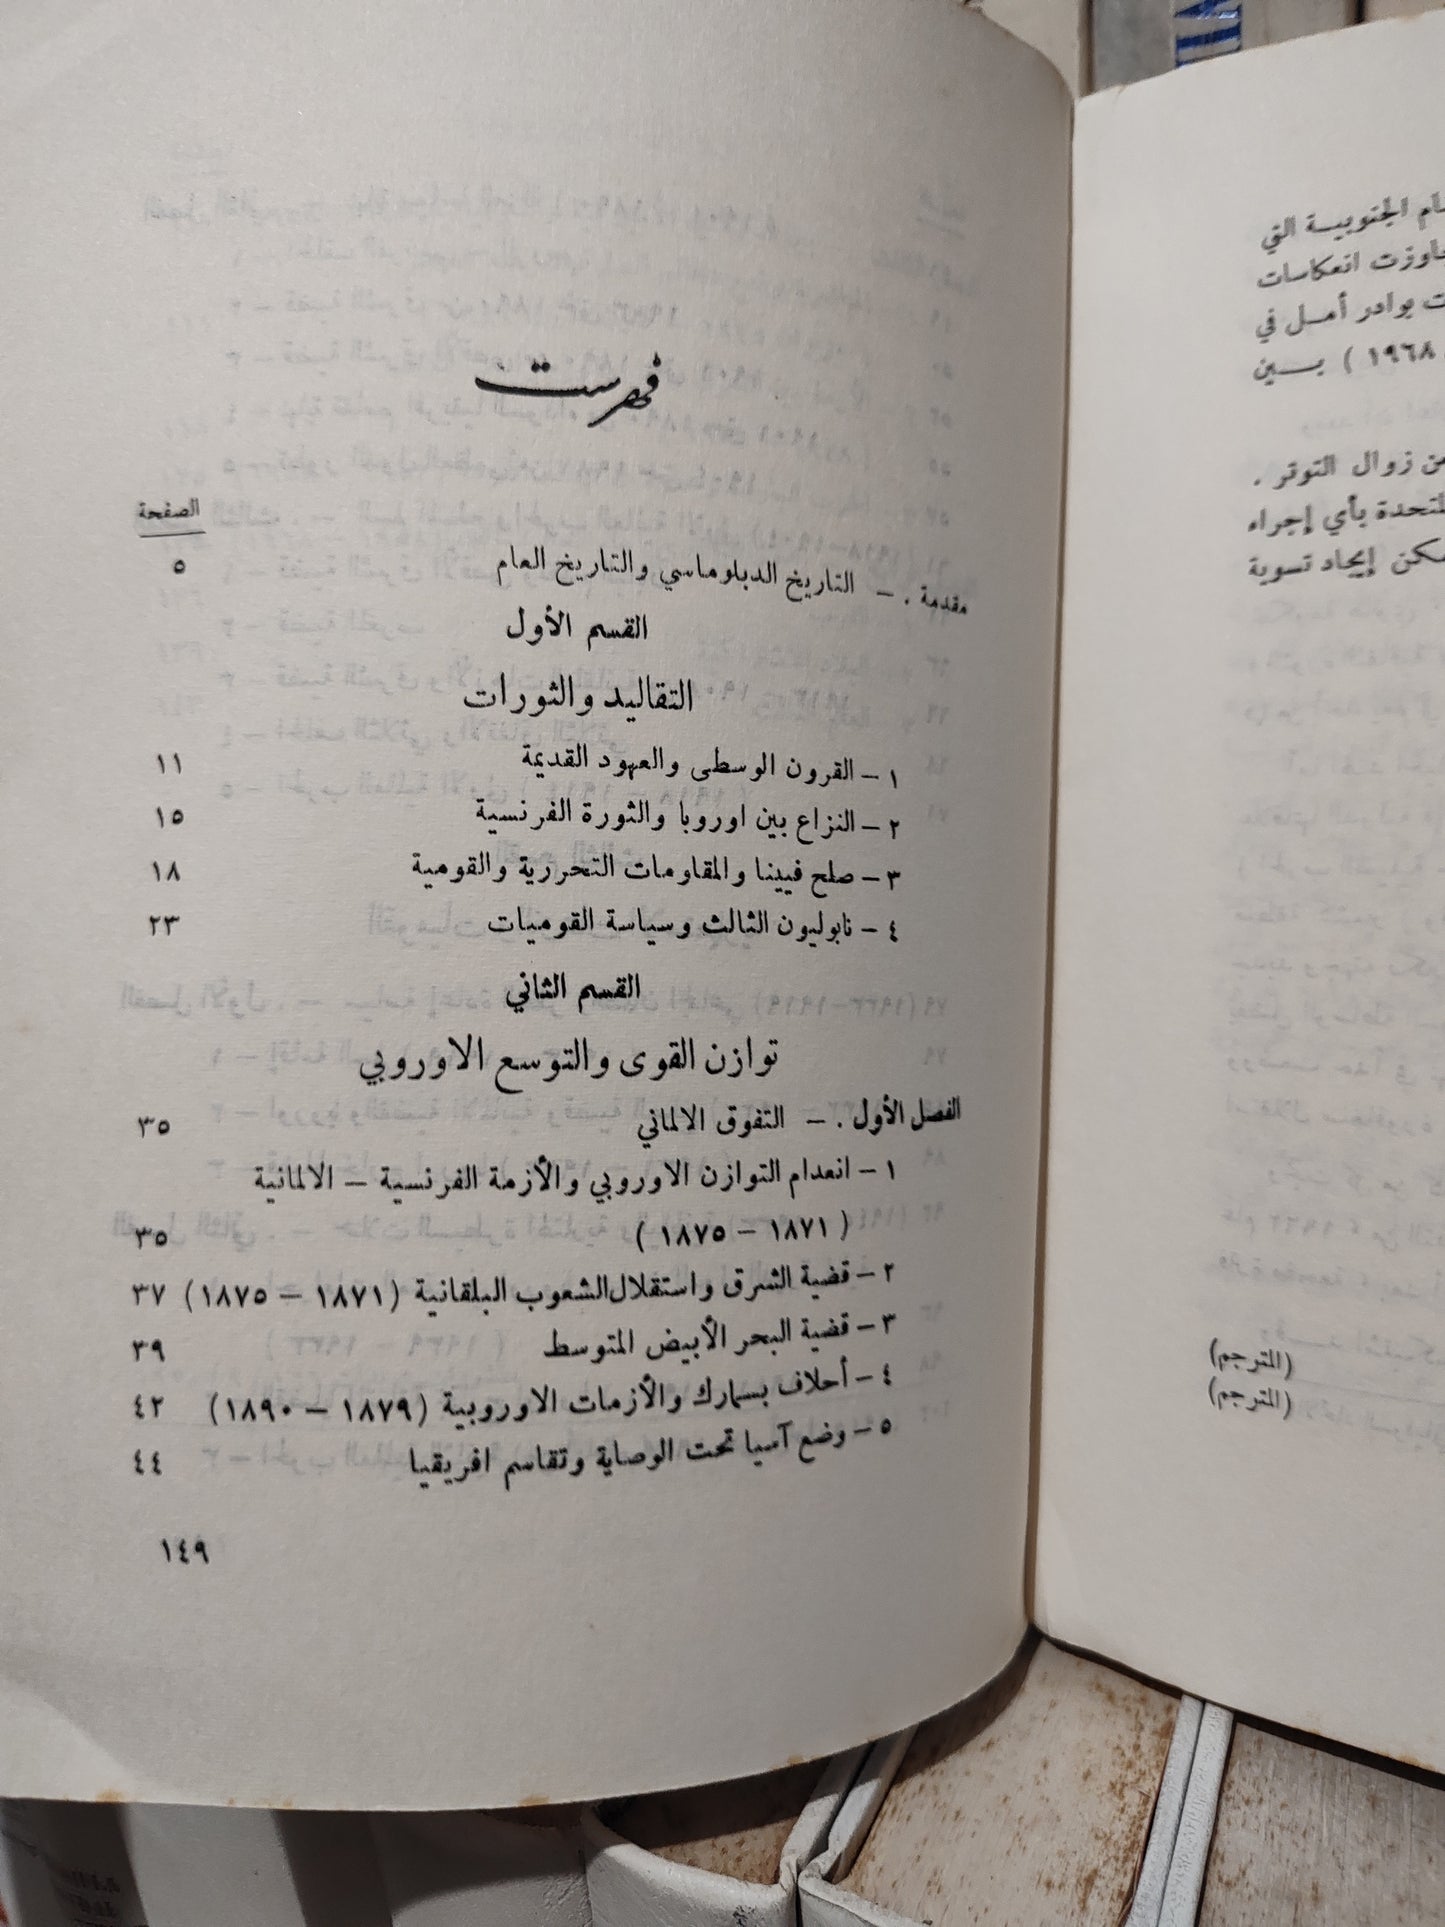 فهرست
الصفحة
مقدمة . — التاريخ الدبلوماسي والتاريخ العام ٥
القسم الأول
التقاليد والثورات
١ — القرون الوسطى والعهود القديمة ١١
٢ — النزاع بين اوروبا والثورة الفرنسية ١٥
٣ — صلح فيينا والمقاومات التحررية والقومية ١٨
٤ — نابوليون الثالث وسياسة القوميات ٢٣
القسم الثاني
توازن القوى والتوسع الاوروبي
الفصل الأول . — التفوق الالماني ٣٥
١ — انعدام التوازن الاوروبي والأزمة الفرنسية — الالمانية
( ١٨٧١ — ١٨٧٥ ) ٣٥
٢ — قضية الشرق واستقلال الشعوب البلقانية (١٨٧١ — ١٨٧٥) ٣٧
٣ — قضية البحر الأبيض المتوسط ٣٩
٤ — أحلاف بسمارك والأزمات الاوروبية (١٨٧٩ — ١٨٩٠) ٤٢
٥ — وضع آسيا تحت الوصاية وتقاسم افريقيا ٤٤
١٤٩
الجنوبية التي
انعكاسات
بوادر أمل في
١٩٦٨ ) بين
زوال التوتر .
بأي إجراء
إيجاد تسوية
(المترجم)
(المترجم)